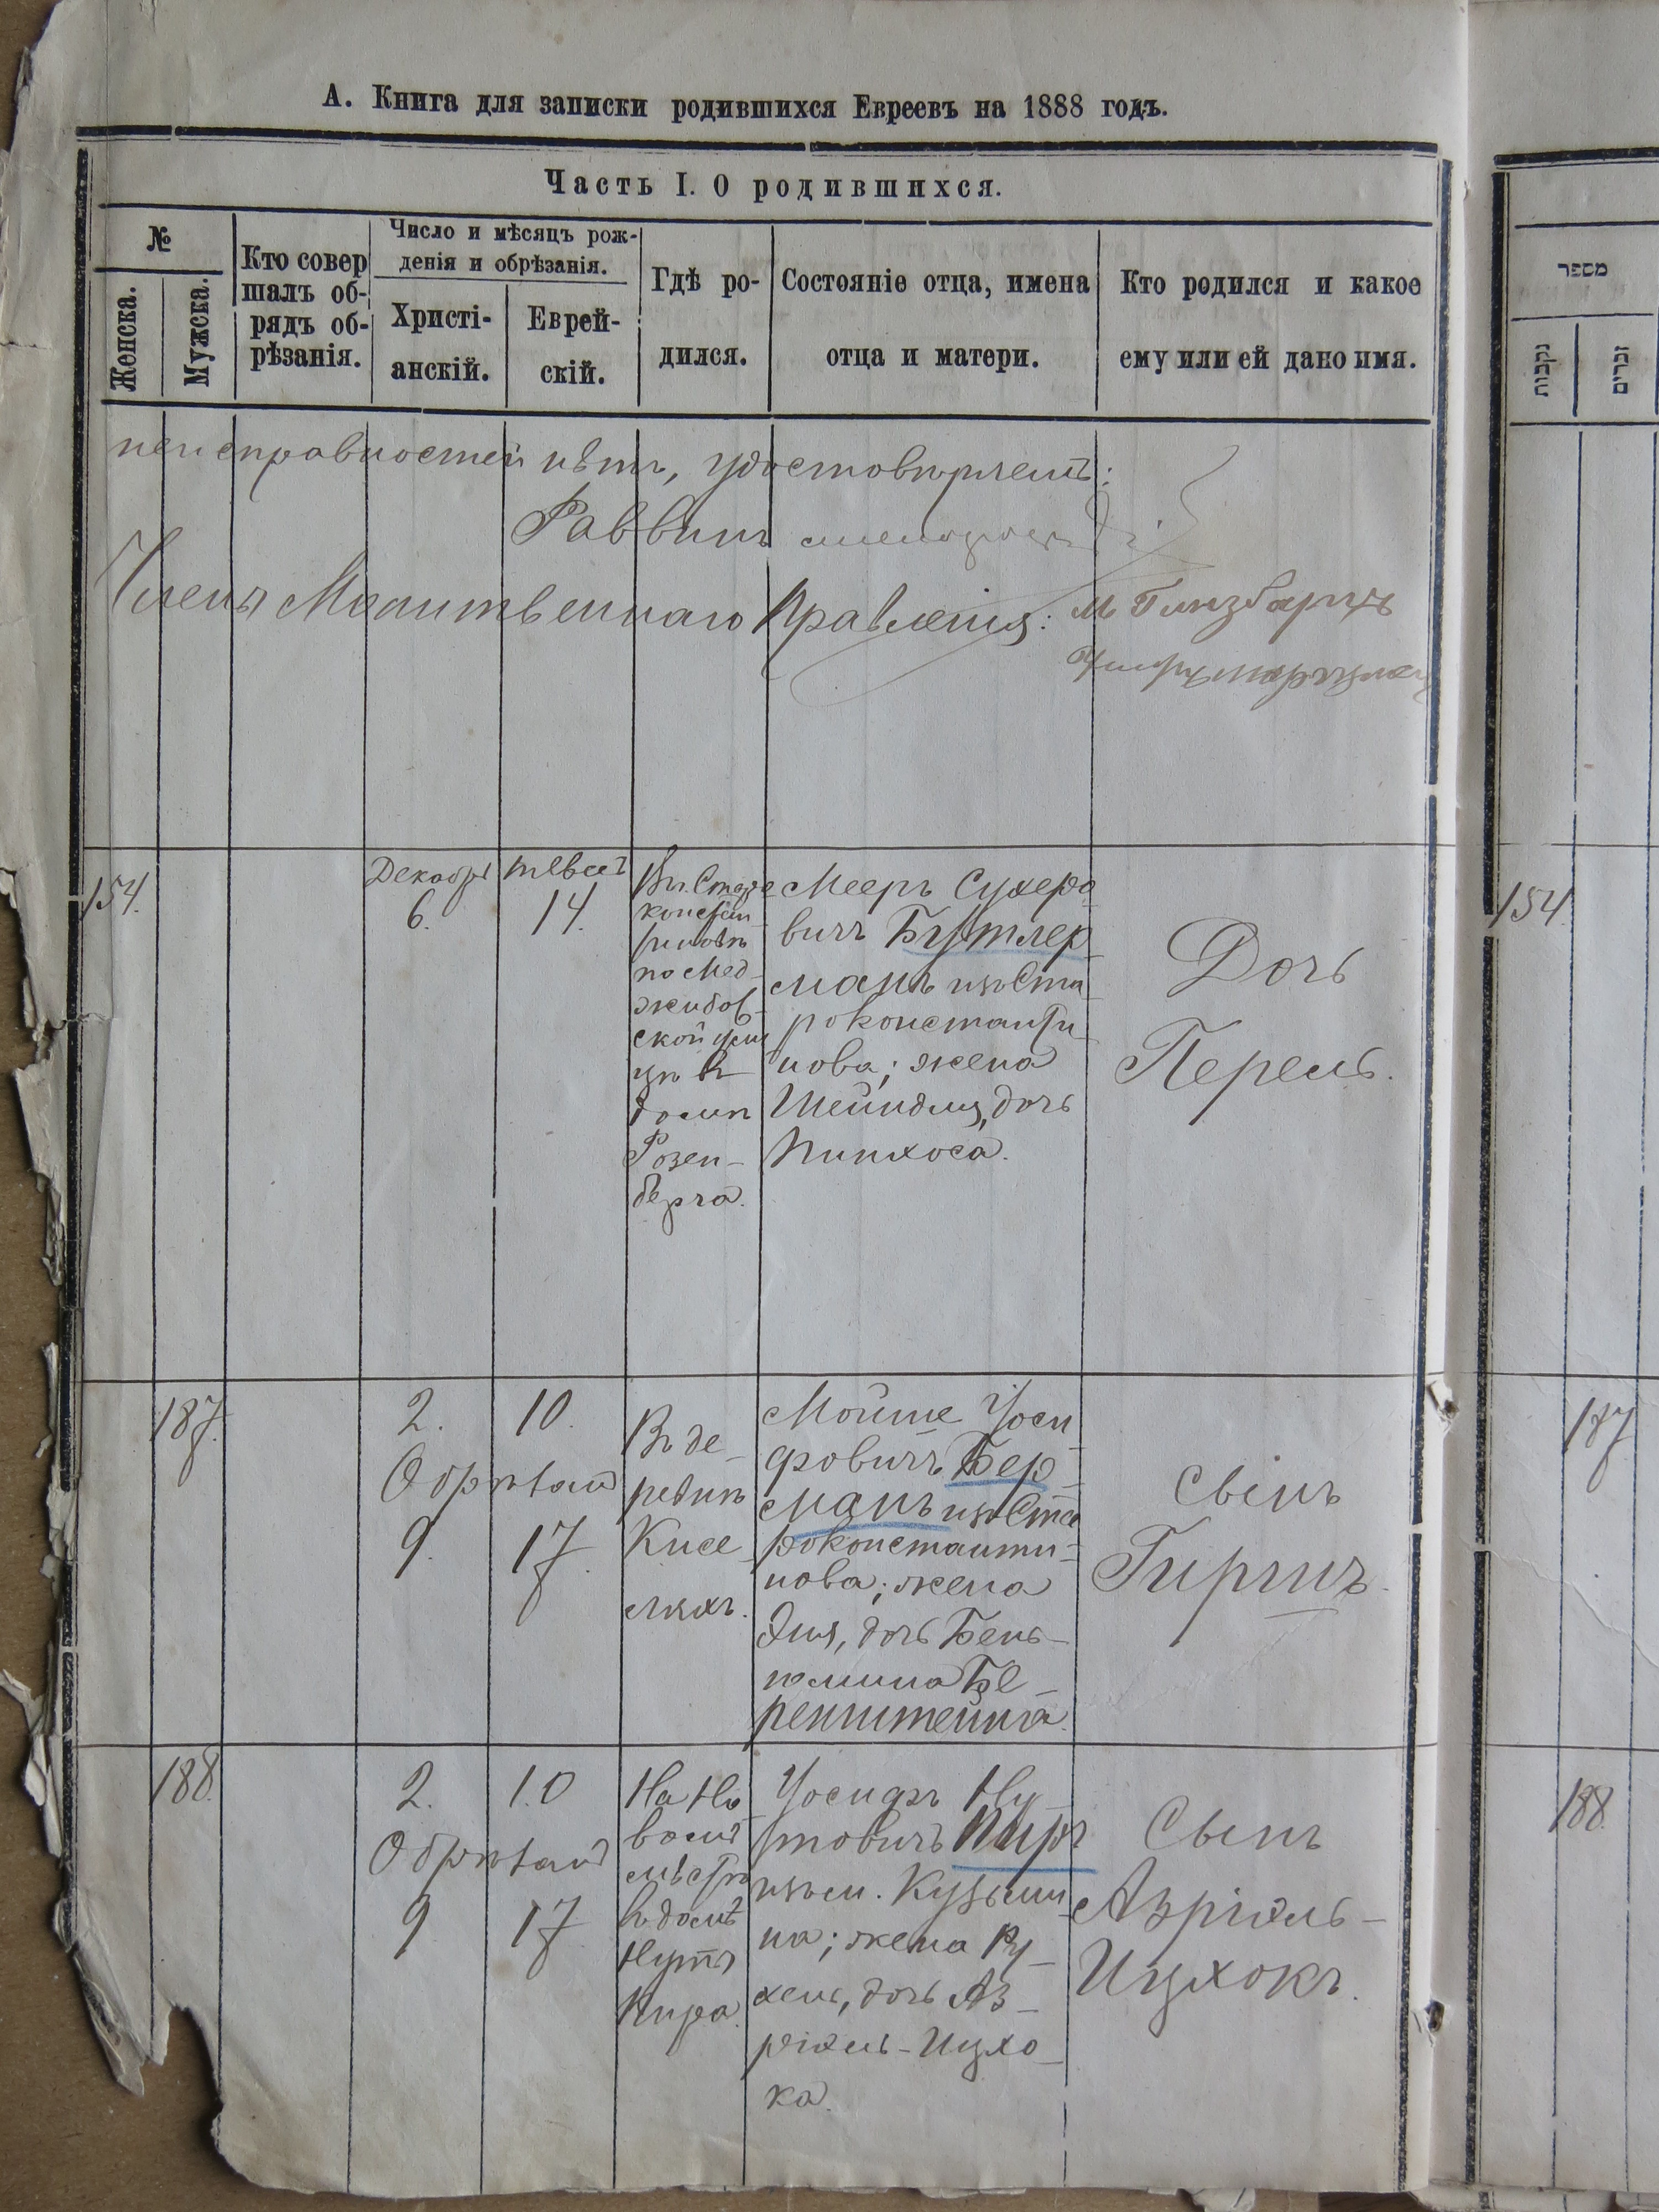 А. Книга для записки родившихся Евреевъ на 1888 годъ.
Часть I. О родившихся.
№
Женска.
Мужска.
Кто совер
шалъ об-
рядъ об-
рѣзанія.
Число и мѣсяцъ рож-
денія и обрѣзанія.
Христі-
анскій.
Еврей-
скій.
Гдѣ ро-
дился.
Состояніе отца, имена
отца и матери.
Кто родился и какое
ему или ей дано имя.
מספר
נקבות
זכרים
неисправностей нѣтъ, удостовѣряемъ:
Раввинъ
Члены Молитвеннаго Правленія: М Гинзбаргъ
154.
Декабрь
6.
Тевесъ
14.
Въ Старо
констан
тиновѣ
по Мед-
жибов-
ской ули
цѣ въ
домѣ
Розен-
берга.
Мееръ Сухеро
вичъ Бутлер-
манъ изъ Ста-
роконстанти-
нова; жена
Шейндля, дочь
Пинхоса.
Дочь
Перель.
154
187.
2.
Обрѣзанъ
9.
10.
17.
Въ де-
ревнѣ
Кисе-
ляхъ.
Мойше Іоси
фовичъ Бер-
манъ изъ Ста
роконстанти-
нова; жена
Эня, дочь Бень-
ямина Бе-
ренштейна.
Сынъ
Гиршъ.
187
188.
2.
Обрѣзанъ
9
10
17
На Но-
вомъ
мѣстѣ
въ домѣ
Нуты
Кира.
Іосифъ Ну-
товичъ Киръ
изъ м. Кузьми
на; жена Ру-
хель, дочь Аз-
ріэль-Ицхо-
ка.
Сынъ
Азріэль-
Ицхокъ.
188